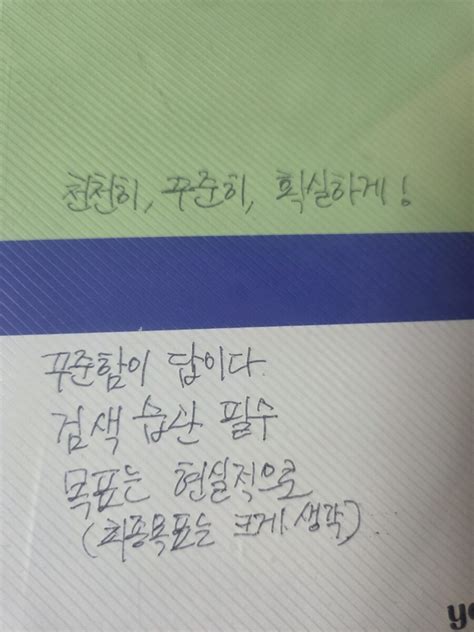 천천히, 꾸준히, 확실하게!
꾸준함이 답이다.
검색 습관 필수
목표는 현실적으로
(최종목표는 크게 생각)